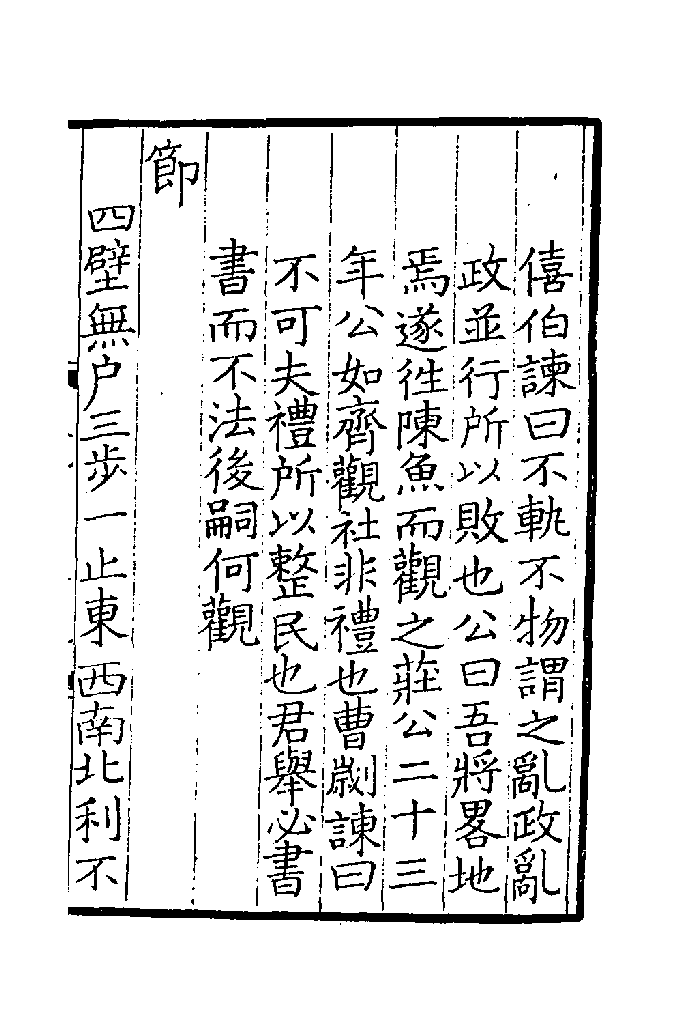 僖伯諫曰不軌不物謂之亂政亂
政並行所以敗也公曰吾將畧地
焉遂徃陳魚而觀之莊公二十三
年公如齊觀社非禮也曹劌諫曰
不可夫禮所以整民也君舉必書
書而不法後嗣何觀
節
四壁無户三步一止東西南北利不